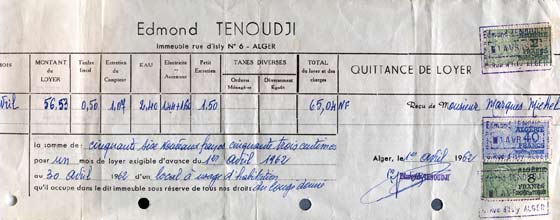 Edmond TENOUDJI
Immeuble rue d'Isly N° 6 - ALGER
MOIS MONTANT de LOYER Timbre fiscal Entretien du Compteur EAU Electricité Ascenseur Petit Entretien TAXES DIVERSES Ordures Ménagères Déversement Egoût TOTAL du loyer et des charges
QUITTANCE DE LOYER
avril 56,53 0,50 1,07 2,40 1,50 65,04 NF
Reçu de Monsieur Marques Michel
la somme de : cinquante six Nouveaux francs cinquante trois centimes
pour un mois de loyer exigible d'avance du 1er avril 1962
au 30 avril 1962 d'un local à usage d'habilation
qu'il occupe dans le dit immeuble sous réserve de tous ses droits
Alger, le 1er avril 1962
EDMOND TENOUDJI
1 AVR
6, Rue d'Isly ALGER
ALGÉRIE
40
FRANCS
8
FRANCS